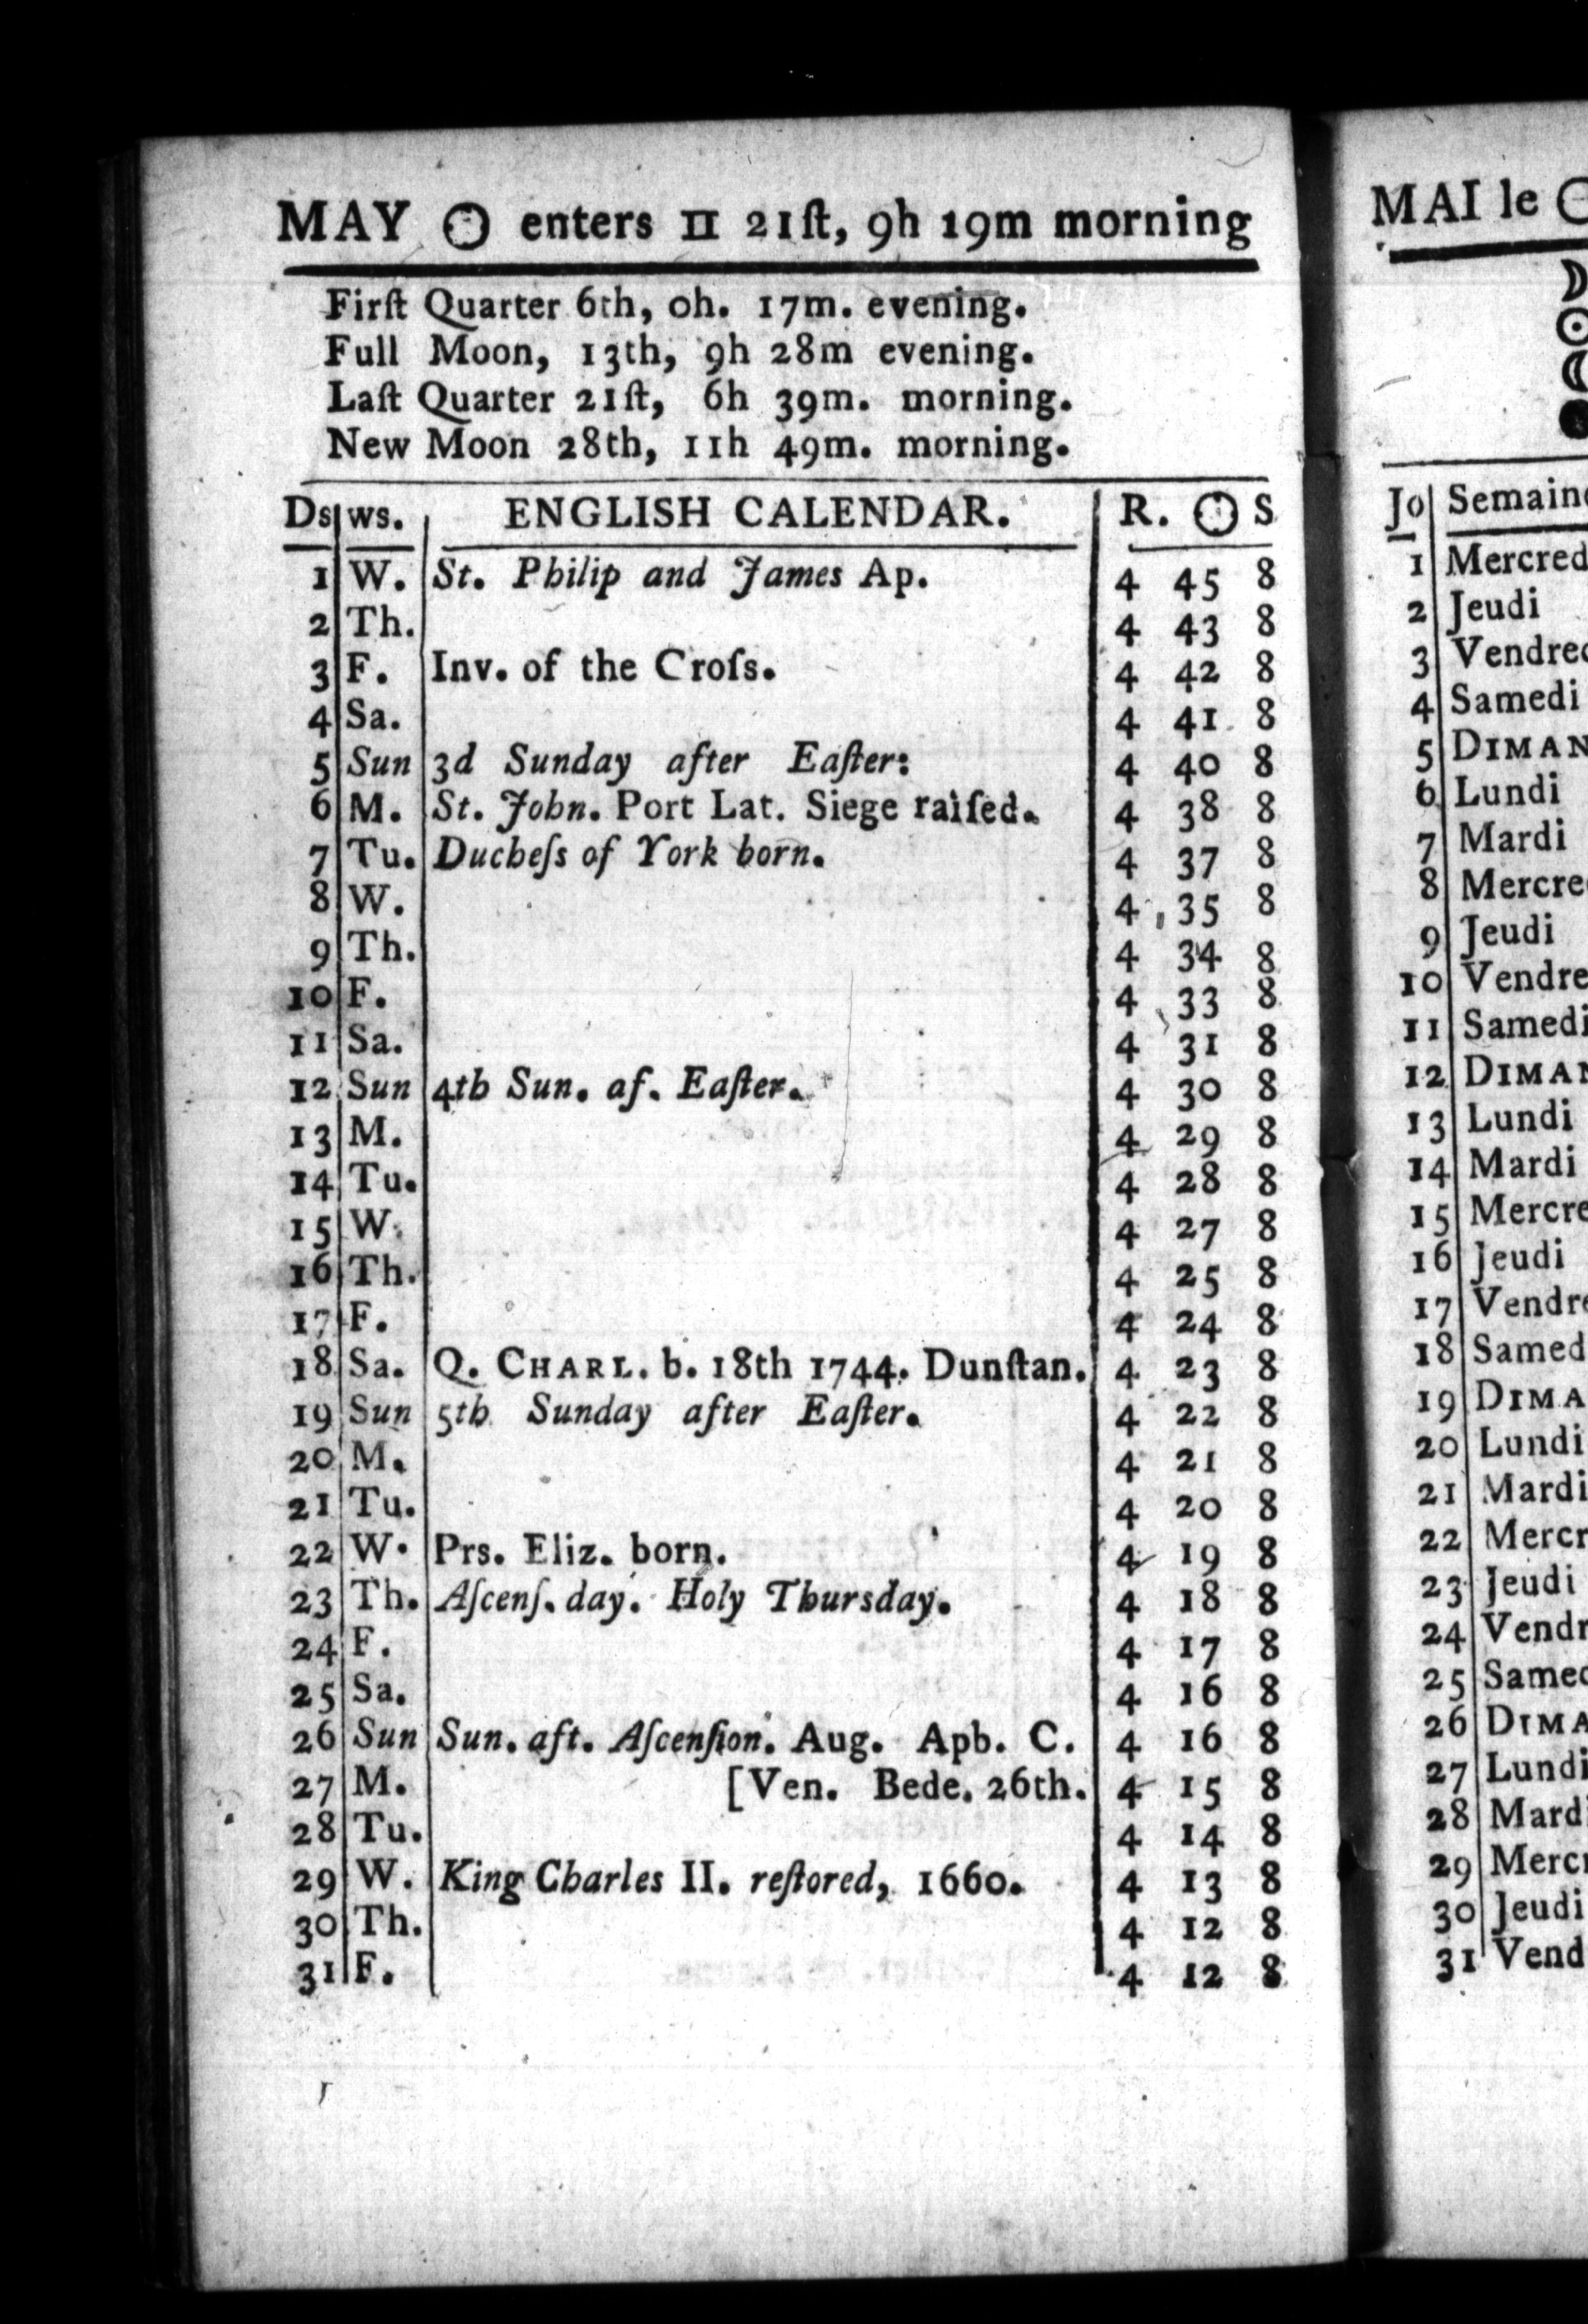 MAY ☉ enters II 21ſt, 9h 19m morning
Firſt Quarter 6th, 0h. 17m. evening.
Full Moon, 13th, 9h 28m evening.
Laſt Quarter 21ſt, 6h 39m. morning.
New Moon 28th, 11h 49m. morning.
Ds ws. ENGLISH CALENDAR. R. ☉ S
1 W. St. Philip and James Ap. 4 45 8
2 Th. 4 43 8
3 F. Inv. of the Croſs. 4 42 8
4 Sa. 4 41 8
5 Sun 3d Sunday after Eaſter: 4 40 8
6 M. St. John. Port Lat. Siege raiſed. 4 38 8
7 Tu. Ducheſs of York born. 4 37 8
8 W. 4 35 8
9 Th. 4 34 8
10 F. 4 33 8
11 Sa. 4 31 8
12 Sun 4th Sun. af. Eaſter. 4 30 8
13 M. 4 29 8
14 Tu. 4 28 8
15 W. 4 27 8
16 Th. 4 25 8
17 F. 4 24 8
18 Sa. Q. CHARL. b. 18th 1744. Dunſtan. 4 23 8
19 Sun 5th Sunday after Eaſter. 4 22 8
20 M. 4 21 8
21 Tu. 4 20 8
22 W. Prs. Eliz. born. 4 19 8
23 Th. Aſcenſ. day. Holy Thursday. 4 18 8
24 F. 4 17 8
25 Sa. 4 16 8
26 Sun Sun. aft. Aſcenſion. Aug. Apb. C. 4 16 8
27 M. [Ven. Bede. 26th. 4 15 8
28 Tu. 4 14 8
29 W. King Charles II. reſtored, 1660. 4 13 8
30 Th. 4 12 8
31 F. 4 12 8
MAI le
Jo Semain
1 Mercred
2 Jeudi
3 Vendred
4 Samedi
5 DIMAN
6 Lundi
7 Mardi
8 Mercre
9 Jeudi
10 Vendre
11 Samedi
12 DIMAN
13 Lundi
14 Mardi
15 Mercre
16 Jeudi
17 Vendre
18 Samed
19 DIMA
20 Lundi
21 Mardi
22 Mercr
23 Jeudi
24 Vendr
25 Samed
26 DIMA
27 Lundi
28 Mardi
29 Mercr
30 Jeudi
31 Vend